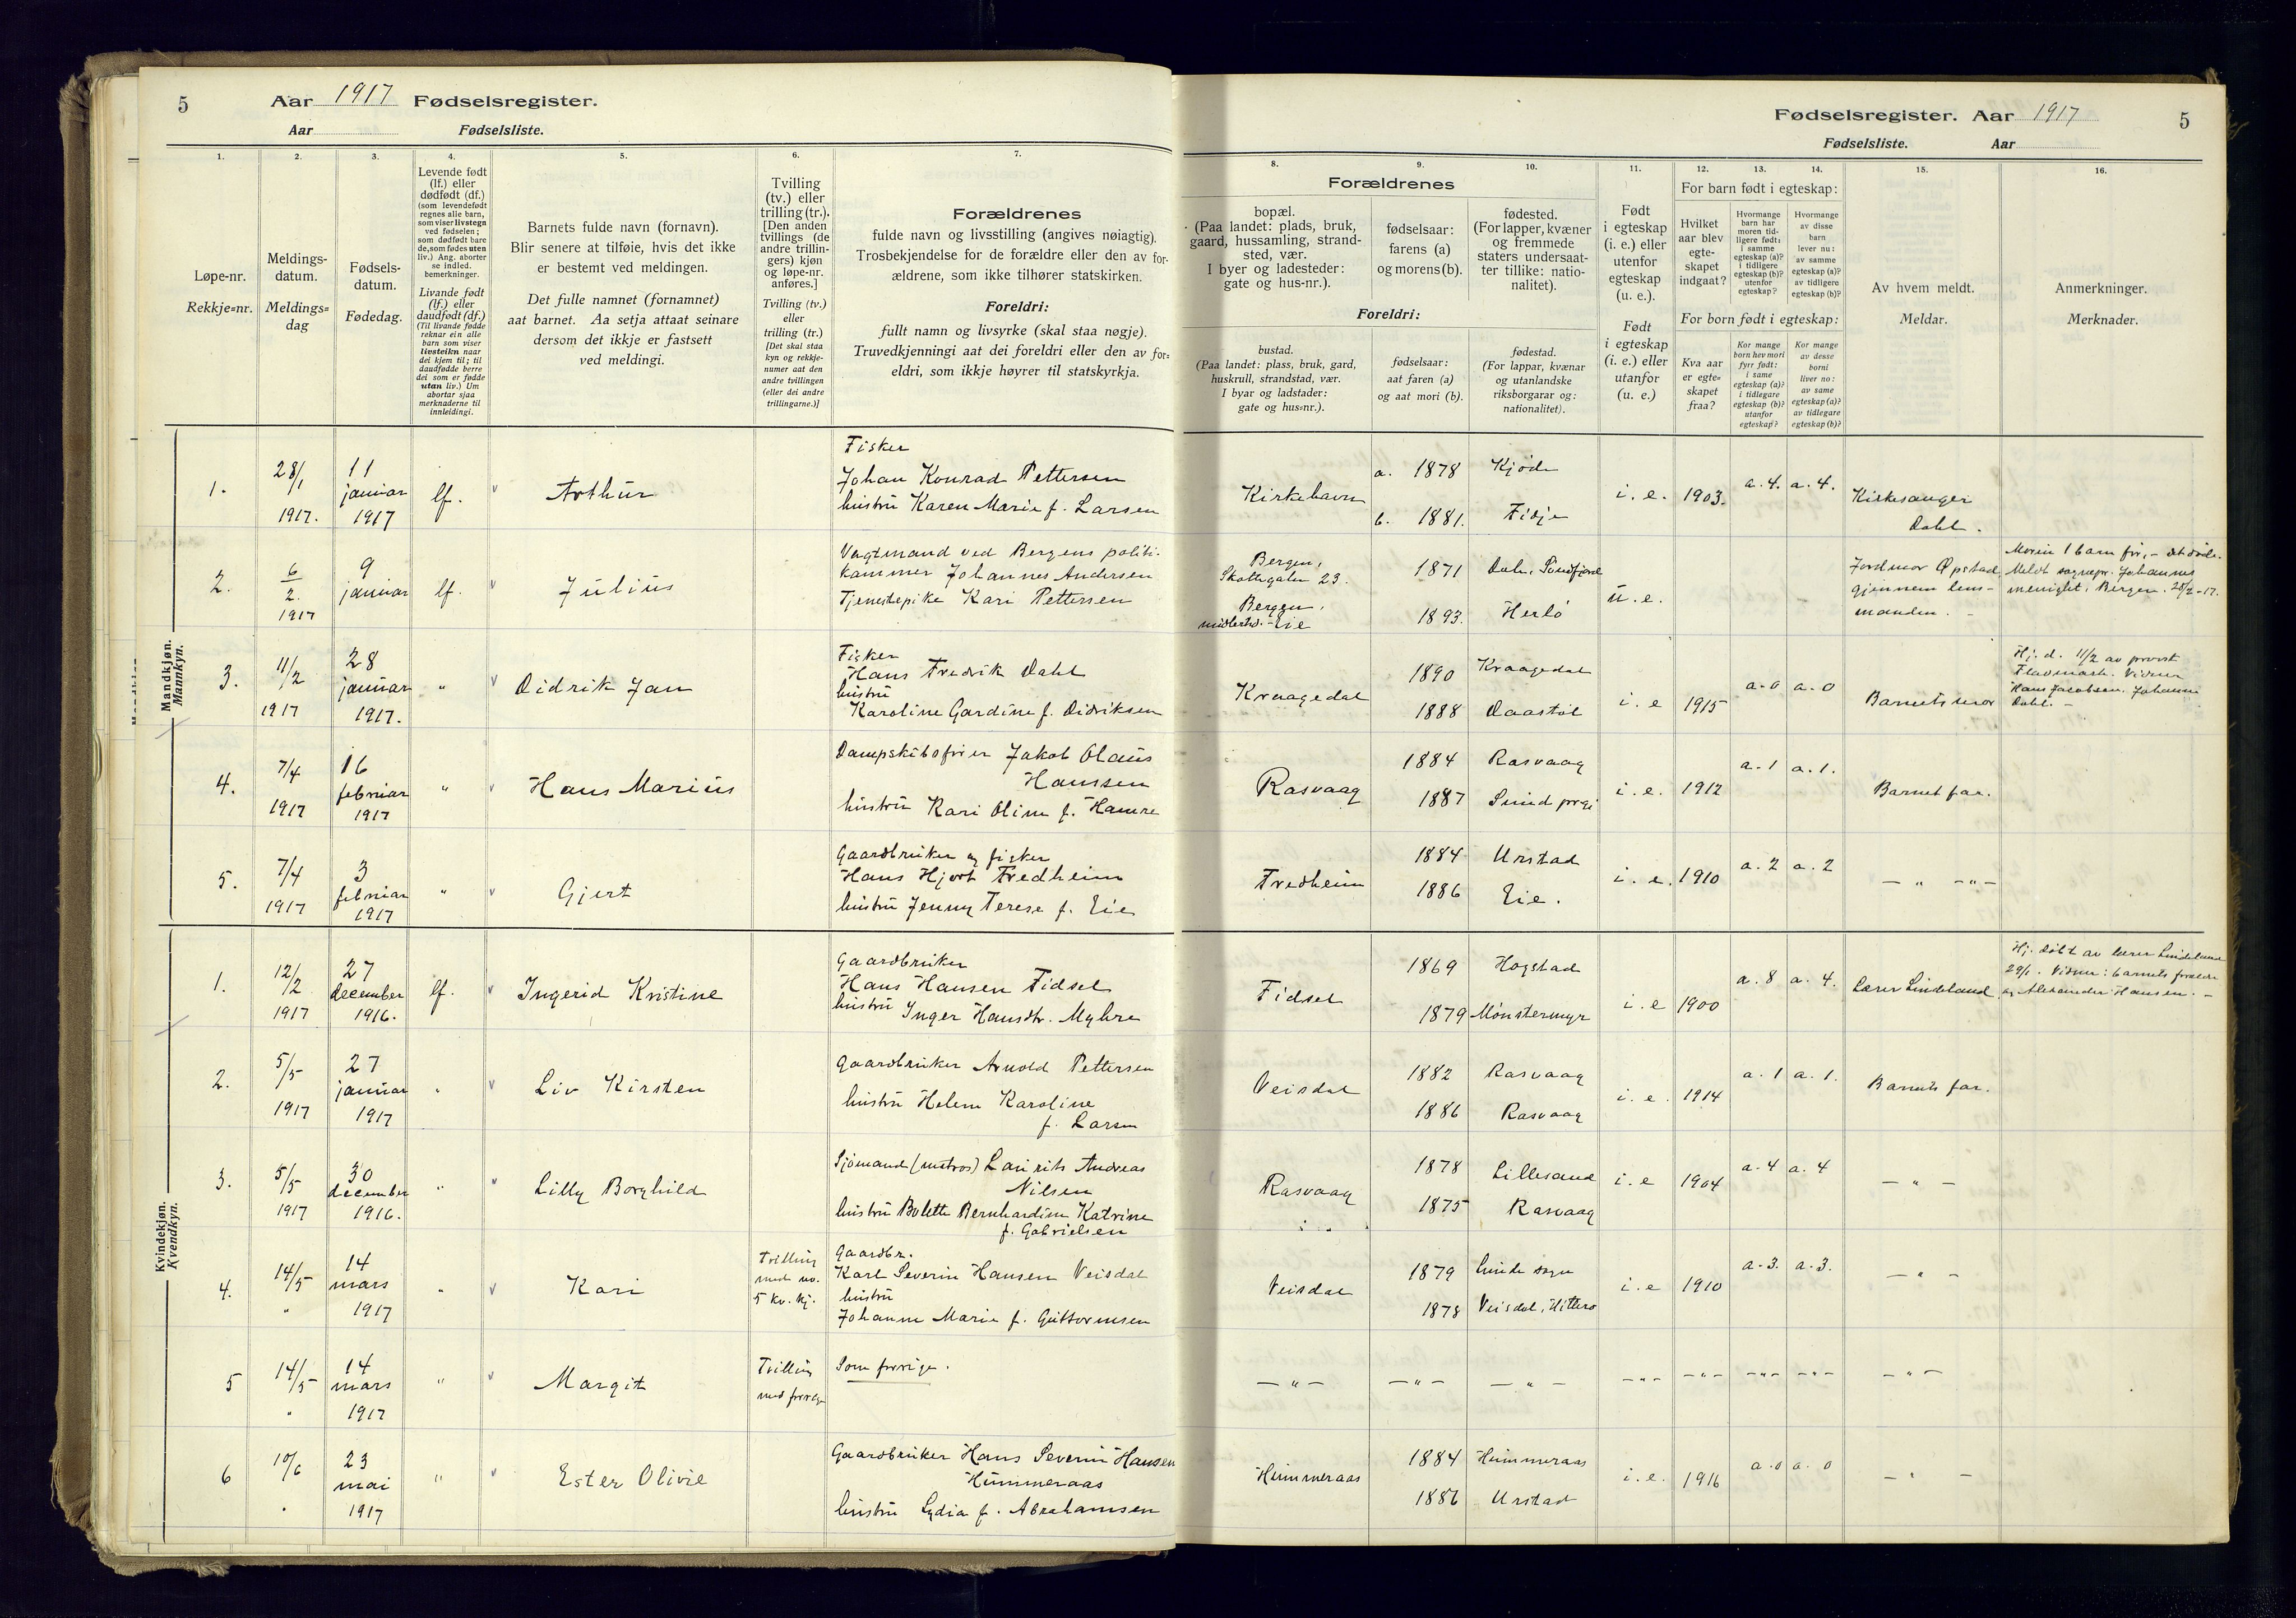 5 Aar 1917 Fødselsregister.
Aar Fødselsliste.
Fødselsregister. Aar 1917 5
Fødselsliste. Aar
1.
Løpe-nr.
Rekkje=nr.
2.
Meldings-
datum.
Meldings=
dag
3.
Fødsels-
datum.
Fødedag.
4.
Levende født
(lf.) eller
dødfødt (df.)
(som levendefødt
regnes alle barn,
som viser livstegn
ved fødselen;
som dødfødt bare
de, som fødes uten
liv.) Ang. aborter
se indled.
bemerkninger.
Livande født
(lf.) eller
daudfødt (df.)
(Til livande fødde
reknar ein alle
barn som viser
livsteikn naar
dei kjem til; til
daudfødde berre
dei som er fødde
utan liv.) Um
abortar sjaa
merknaderne til
innleidingi.
5.
Barnets fulde navn (fornavn).
Blir senere at tilføie, hvis det ikke
er bestemt ved meldingen.
Det fulle namnet (fornamnet)
aat barnet. Aa setja attaat seinare
dersom det ikkje er fastsett
ved meldingi.
6.
Tvilling
(tv.) eller
trilling (tr.).
[Den anden
tvillings (de
andre trillin-
gers) kjøn
og løpe-nr.
anføres.]
Tvilling (tv.)
eller
trilling (tr.)
[Det skal staa
kyn og rekkje-
numer aat den
andre tvillingen
(eller dei andre
trillingarne.)]
7.
Forældrenes
fulde navn og livsstilling (angives nøiagtig).
Trosbekjendelse for de forældre eller den av for-
ældrene, som ikke tilhører statskirken.
Foreldri:
fullt namn og livsyrke (skal staa nøgje).
Truvedkjenningi aat dei foreldri eller den av for=
eldri, som ikkje høyrer til statskyrkja.
Forældrenes
8.
bopæl.
(Paa landet: plads, bruk,
gaard, hussamling, strand-
sted, vær.
I byer og ladesteder:
gate og hus-nr.).
Foreldri:
bustad.
(Paa landet: plass, bruk, gard,
huskrull, strandstad, vær.
I byar og ladstader:
gate og hus=nr.).
9.
fødselsaar:
farens (a)
og morens (b).
fødselsaar:
aat faren (a)
og aat mori (b).
10.
fødested.
(For lapper, kvæner
og fremmede
staters undersaat-
ter tillike: natio-
nalitet).
fødestad.
(For lappar, kvænar
og utanlandske
riksborgarar og:
nationalitet).
11.
Født
i egteskap
(i. e.) eller
utenfor
egteskap
(u. e.).
Født
i egteskap
(i. e.) eller
utanfor
(u. e.)
12. 13. 14.
For barn født i egteskap:
Hvilket
aar blev
egte-
skapet
indgaat?
Hvormange
barn har
moren tid-
ligere født:
i samme
egteskap (a)?
i tidligere
egteskap (b)?
utenfor
egteskap?
Hvormange
av disse
barn
lever nu:
av samme
egteskap (a)?
av tidligere
egteskap (b)?
For born født i egteskap:
Kva aar
er egte=
skapet
fraa?
Kor mange
born hev mori
fyrr født:
i same
egteskap (a)?
i tidlegare
egteskap (b)?
utanfor
egteskap?
Kor mange
av desse
borni
liver no:
av same
egteskap (a)?
av tidlegare
egteskap (b)?
15.
Av hvem meldt.
Meldar.
16.
Anmerkninger.
Merknader.
Mandkjøn.
Mannkyn.
1. 28/1 1917. 11 januar 1917 lf. Arthur
Fisker
Johan Konrad Pettersen
hustru Karen Marie f. Larsen
Kirkehavn a. 1878 Kjøde b. 1881. Fidje i. e. 1903. a. 4. a. 4. Kirkesanger Dahl.
2. 6/2. 1917 9 januar lf. Julius
Vagtmand ved Bergens politi-
kammer Johannes Andersen
Tjenestepike Kari Pettersen
Bergen, Skottegaten 23. 1871 Dale, Søndfjord
Bergen, midlertid. Eie 1893. Herlø u. e.
Jordmor Opstad gjennem lens-
manden.
Moren 1 barn før, – det døde.
Meldt sognepr. Johannes
menighet, Bergen. 28/2 - 17.
3. 11/2 1917 28 januar 1917. " Didrik Jan
Fisker
Hans Fredrik Dahl
hustru
Karoline Gardine f. Didriksen
Kraagedal 1890 Kraagedal 1888 Daastøl i. e 1915 a. 0 a. 0 Barnets mor
Hj. d. 11/2 av provst
Hans Jacobsen. Johanne
Dahl. –
4. 7/4 1917 16 februar 1917 " Hans Marius
Dampskibsfører Jakob Olaus
Hanssen
hustru Kari Oline f. Hamre
Rasvaag 1884 Rasvaag 1887 Sund prgj i. e. 1912 a. 1 a. 1. Barnet far.
5. 7/4 1917 3 februar 1917 " Gjert
Gaardbruker og fisker
Hans Hjort Fredheim
hustru Jenny Terese f. Eie
Fredheim 1884 Urstad 1886 Eie. i. e. 1910 a. 2 a. 2 – " – " –
Kvindekjøn.
Kvendkyn.
1. 12/2 1917 27 december 1916. lf. Ingerid Kristine
Gaardbruker
Hans Hansen Fidsel
hustru Inger Hansdtr. Myhre
Fidsel 1869 Hogstad 1879 Mønstermyr i. e 1900 a. 8 a. 4. Lærer Lindeland
Hj. døbt av lærer Lindeland
29/1. Vidner: barnets forældre
og Aleksander Hansen. –
2. 5/5 1917 27 januar 1917 " Liv Kirsten
Gaardbruker Arnold Pettersen
hustru Helene Karoline
f. Larsen
Veisdal 1882 Rasvaag 1886 Rasvaag i. e. 1914 a. 1 a. 1. Barnets far.
3. 5/5 1917 30 december 1916. " Lilly Borghild
Sjømand (matros) Laurits Andreas
Nilsen
hustru Bolette Bernhardine Katrine
f. Gabrielsen
Rasvaag 1878 Lillesand 1875 Rasvaag i. e 1904 a. 4 a. 4 – " –
4. 14/5 " 14 mars 1917 " Kari
Tvilling
med no.
5 kv. kj.
Gaardbr.
Karl Severin Hansen Veisdal
hustru
Johanne Marie f. Guttormsen
Veisdal 1879 1878 Veisdal, Hitterø i. e 1910 a. 3. a. 3. – " –
5 14/5 " 14 mars 1917 " Margit
Tvilling
med forrige
Som forrige.
– " – – " – – " – – " – – " – – " – – " – – " –
6 10/6 " 23 mai 1917 " Ester Olivie
Gaardbruker Hans Severin Hansen
Hummeraas
hustru Lydia f. Abrahamsen
Hummeraas 1884 Hummeraas 1886 Urstad i. e. 1916 a. 0 a. 0 – " –